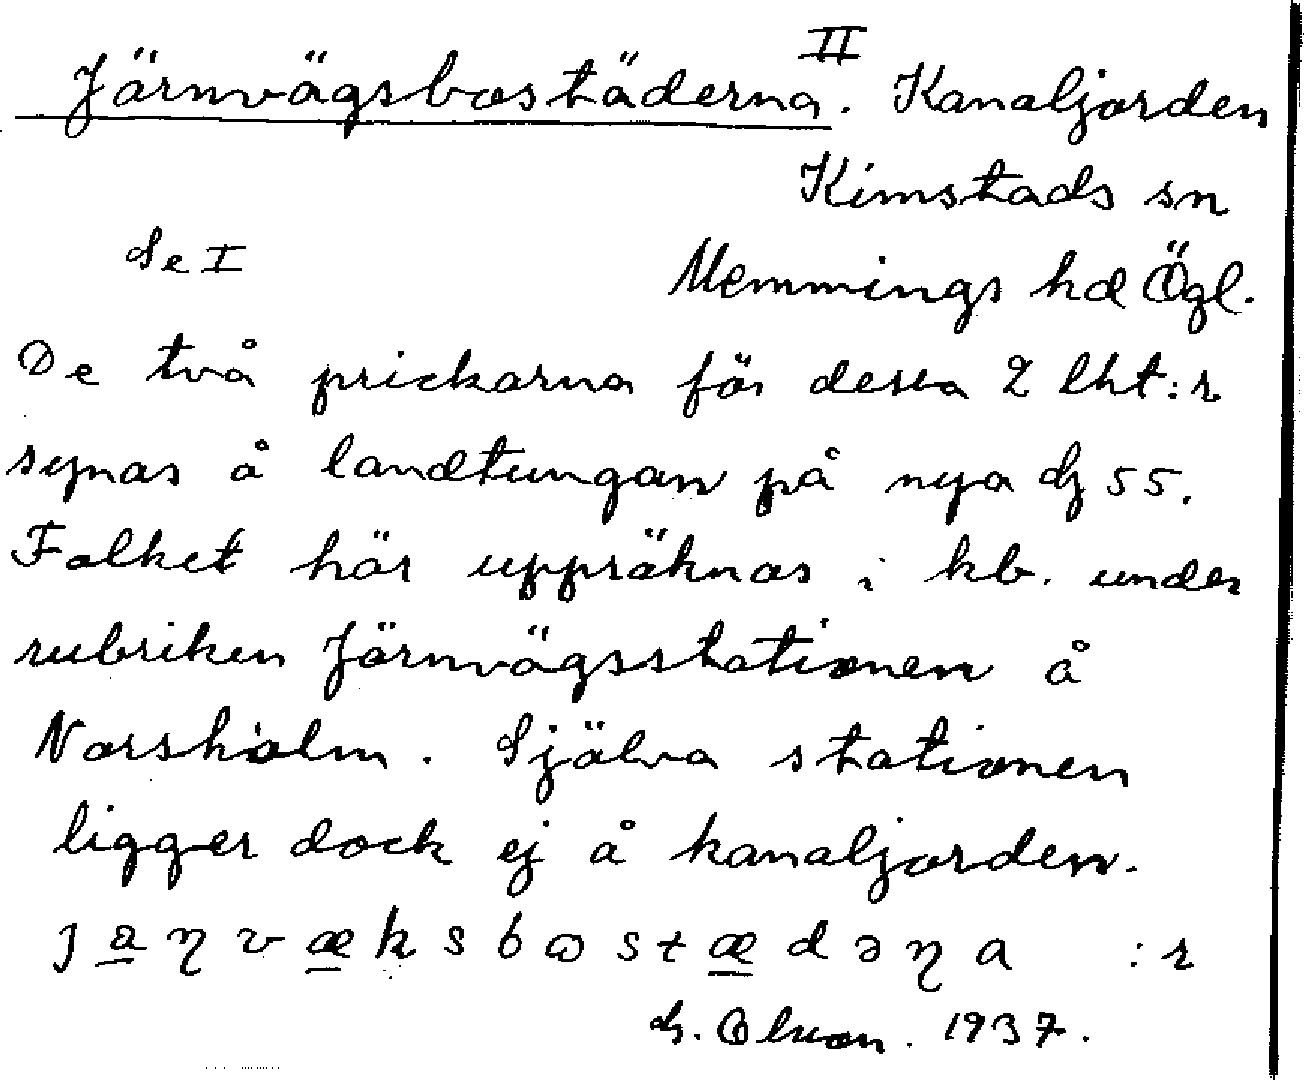 II
Järnvägsbostäderna. Kanaljorden
Kimstads sn
Se I
Memmings hd Ögl.
De två prickarna för dessa 2 lht:r
synas å landtungan på nya dg 55.
Folket här uppräknas i kb. under
rubriken Järnvägsstationen å
Norsholm. Själva stationen
ligger dock ej å kanaljorden.
jaŋvæksbωstædəŋa :r
G. Olsson. 1937.